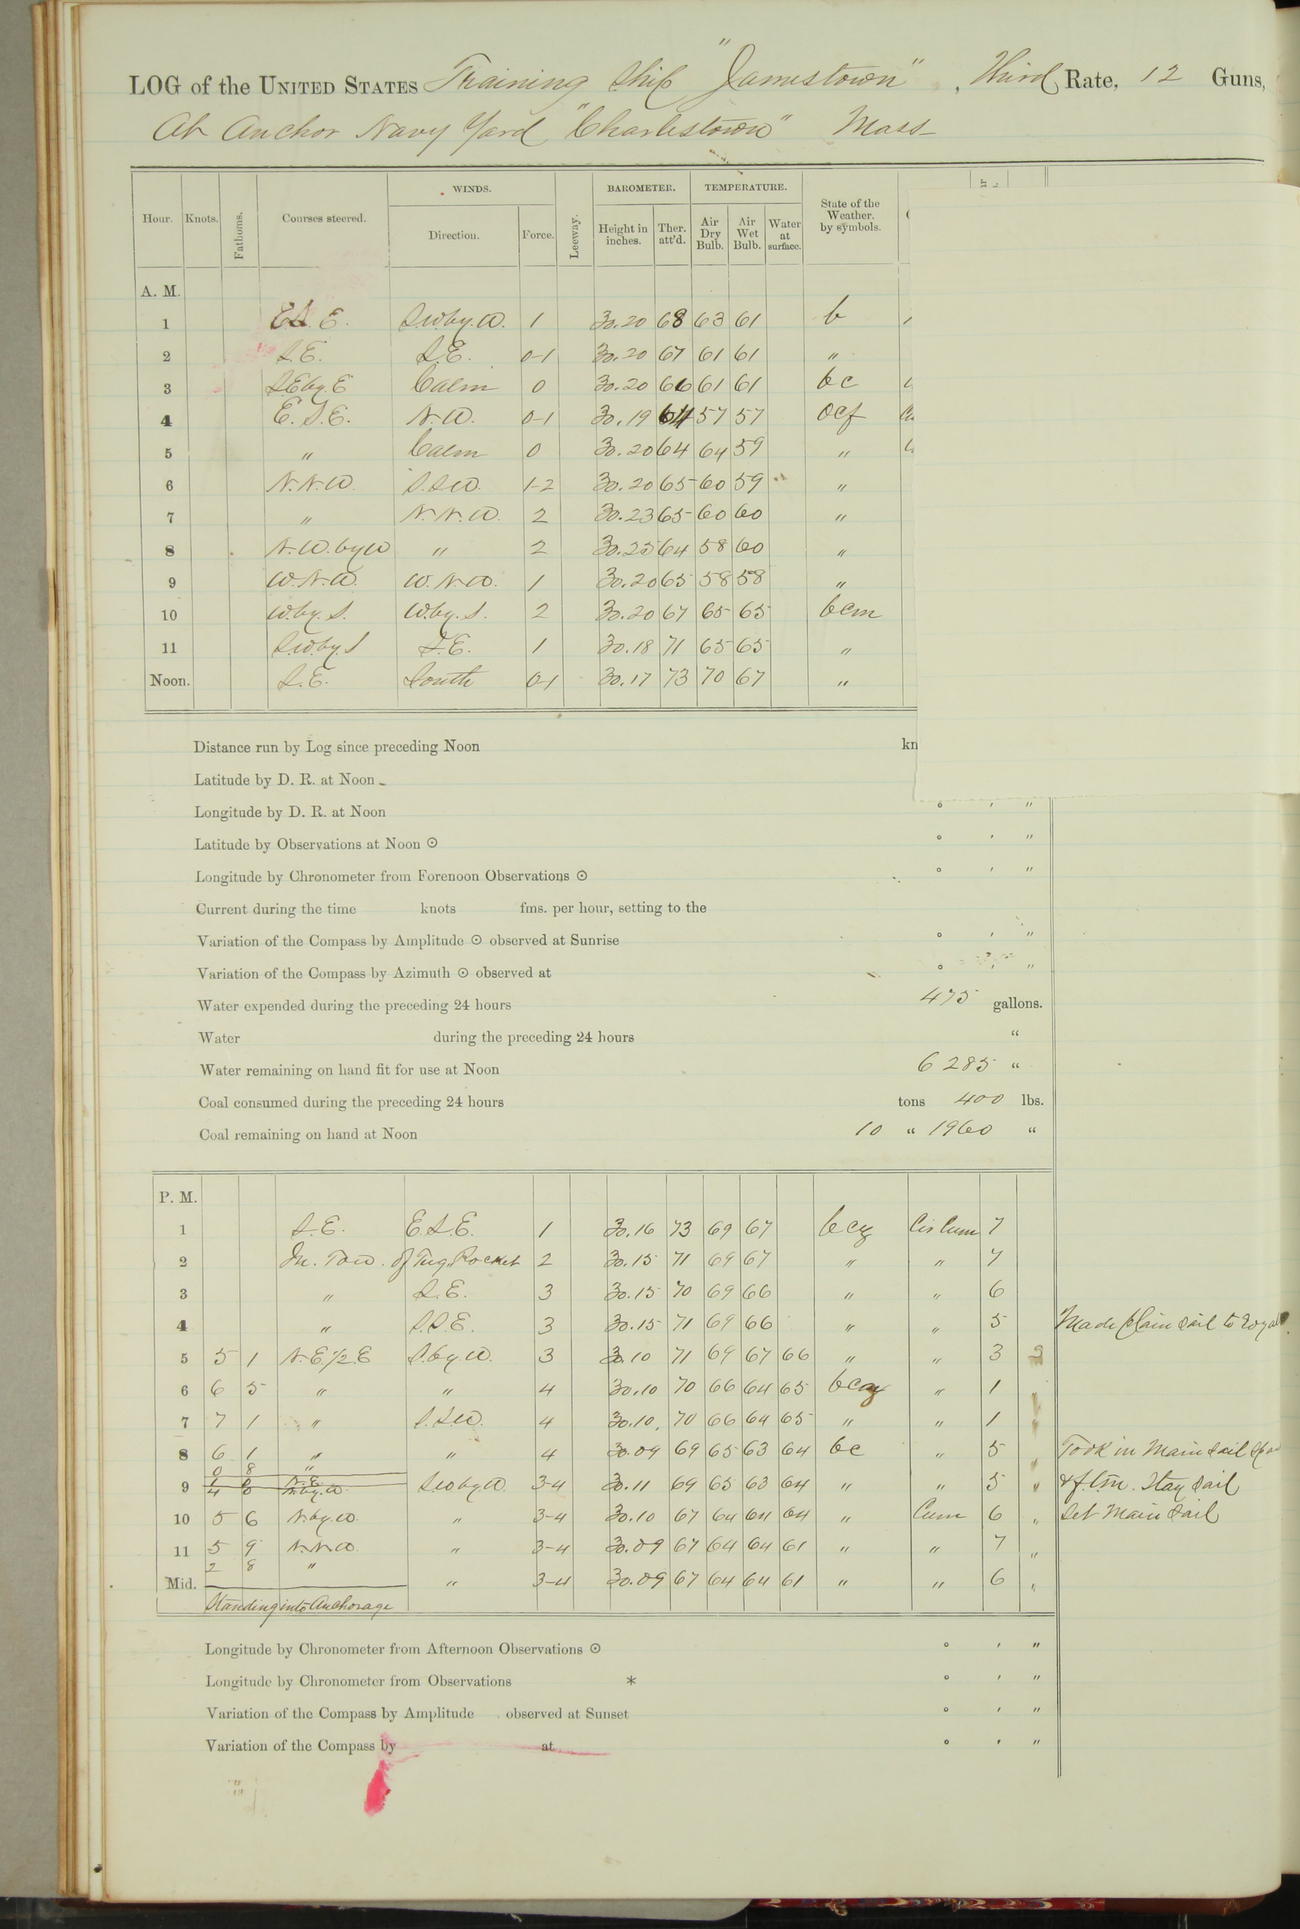 LOG of the UNITED STATES Training Ship "Jamestown", Third Rate, 12 Guns,
At Anchor Navy Yard "Charlestown" Mass
Hour. Knots. Fathoms. Courses steered. WINDS. Direction. Force. Leeway. BAROMETER. Height in inches. Ther. att'd. TEMPERATURE. Air Dry Bulb. Air Wet Bulb. Water at surface. State of the Weather. by symbols.
A. M.
1 E.S.E. S.W.by.W. 1 30.20 68 63 61 b
2 S.E. S.E. 0-1 30.20 67 61 61 "
3 S.E.by.E Calm 0 30.20 66 61 61 bc
4 E.S.E. N.W. 0-1 30.19 64 57 57 ocf
5 " Calm 0 30.20 64 64 59 "
6 N.N.W. S.S.W. 1-2 30.20 65 60 59 "
7 " N.N.W. 2 30.23 65 60 60 "
8 N.W.byW " 2 30.25 64 58 60 "
9 W.N.W. W.N.W. 1 30.20 65 58 58 "
10 W.by.S. W.by.S. 2 30.20 67 65 65 bcm
11 S.W.by.S S.E. 1 30.18 71 65 65 "
Noon. S.E. South 0-1 30.17 73 70 67 "
Distance run by Log since preceding Noon kn
Latitude by D. R. at Noon
Longitude by D. R. at Noon ° ' "
Latitude by Observations at Noon ☉ ° ' "
Longitude by Chronometer from Forenoon Observations ☉ ° ' "
Current during the time knots fms. per hour, setting to the
Variation of the Compass by Amplitude ☉ observed at Sunrise ° ' "
Variation of the Compass by Azimuth ☉ observed at ° ' "
Water expended during the preceding 24 hours 475 gallons.
Water during the preceding 24 hours "
Water remaining on hand fit for use at Noon 6285 "
Coal consumed during the preceding 24 hours tons 400 lbs.
Coal remaining on hand at Noon 10 " 1960 "
P. M.
1 S.E. E.S.E. 1 30.16 73 69 67 bcz Cir Cum 7
2 In. Tow. of Tug Rocket 2 30.15 71 69 67 " " 7
3 " S.E. 3 30.15 70 69 66 " " 6
4 " S.S.E. 3 30.15 71 69 66 " " 5 Made plain sail to Royals.
5 5 1 N.E½E S.by.W. 3 30.10 71 69 67 66 " " 3
6 6 5 " " 4 30.10 70 66 64 65 " 1
7 7 1 " S.S.W. 4 30.10 70 66 64 65 " " 1
8 6 1 " " 4 30.09 69 65 63 64 bc " 5 " Took in Main Sail
0 8 "
9 N.E. N.by.W. S.W.by.W. 3-4 30.11 69 65 63 64 " " 5 " Stay Sail
10 5 6 N.by.W. " 3-4 30.10 67 64 64 64 " Cum 6 " Set Main Sail
11 5 9 N.N.W. " 3-4 30.09 67 64 64 61 " " 7 "
2 8 "
Mid. " 3-4 30.09 67 64 64 61 " " 6 "
Standing into Anchorage
Longitude by Chronometer from Afternoon Observations ☉ ° ' "
Longitude by Chronometer from Observations * ° ' "
Variation of the Compass by Amplitude observed at Sunset ° ' "
Variation of the Compass by at ° ' "